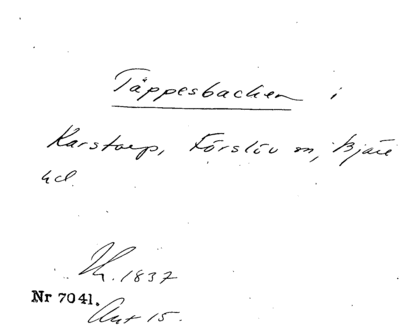 Täppesbacken i
Karstorp, Förslöv sn, Bjäre
hd.
Th. 1837
Nr 7041.
Ant 15.